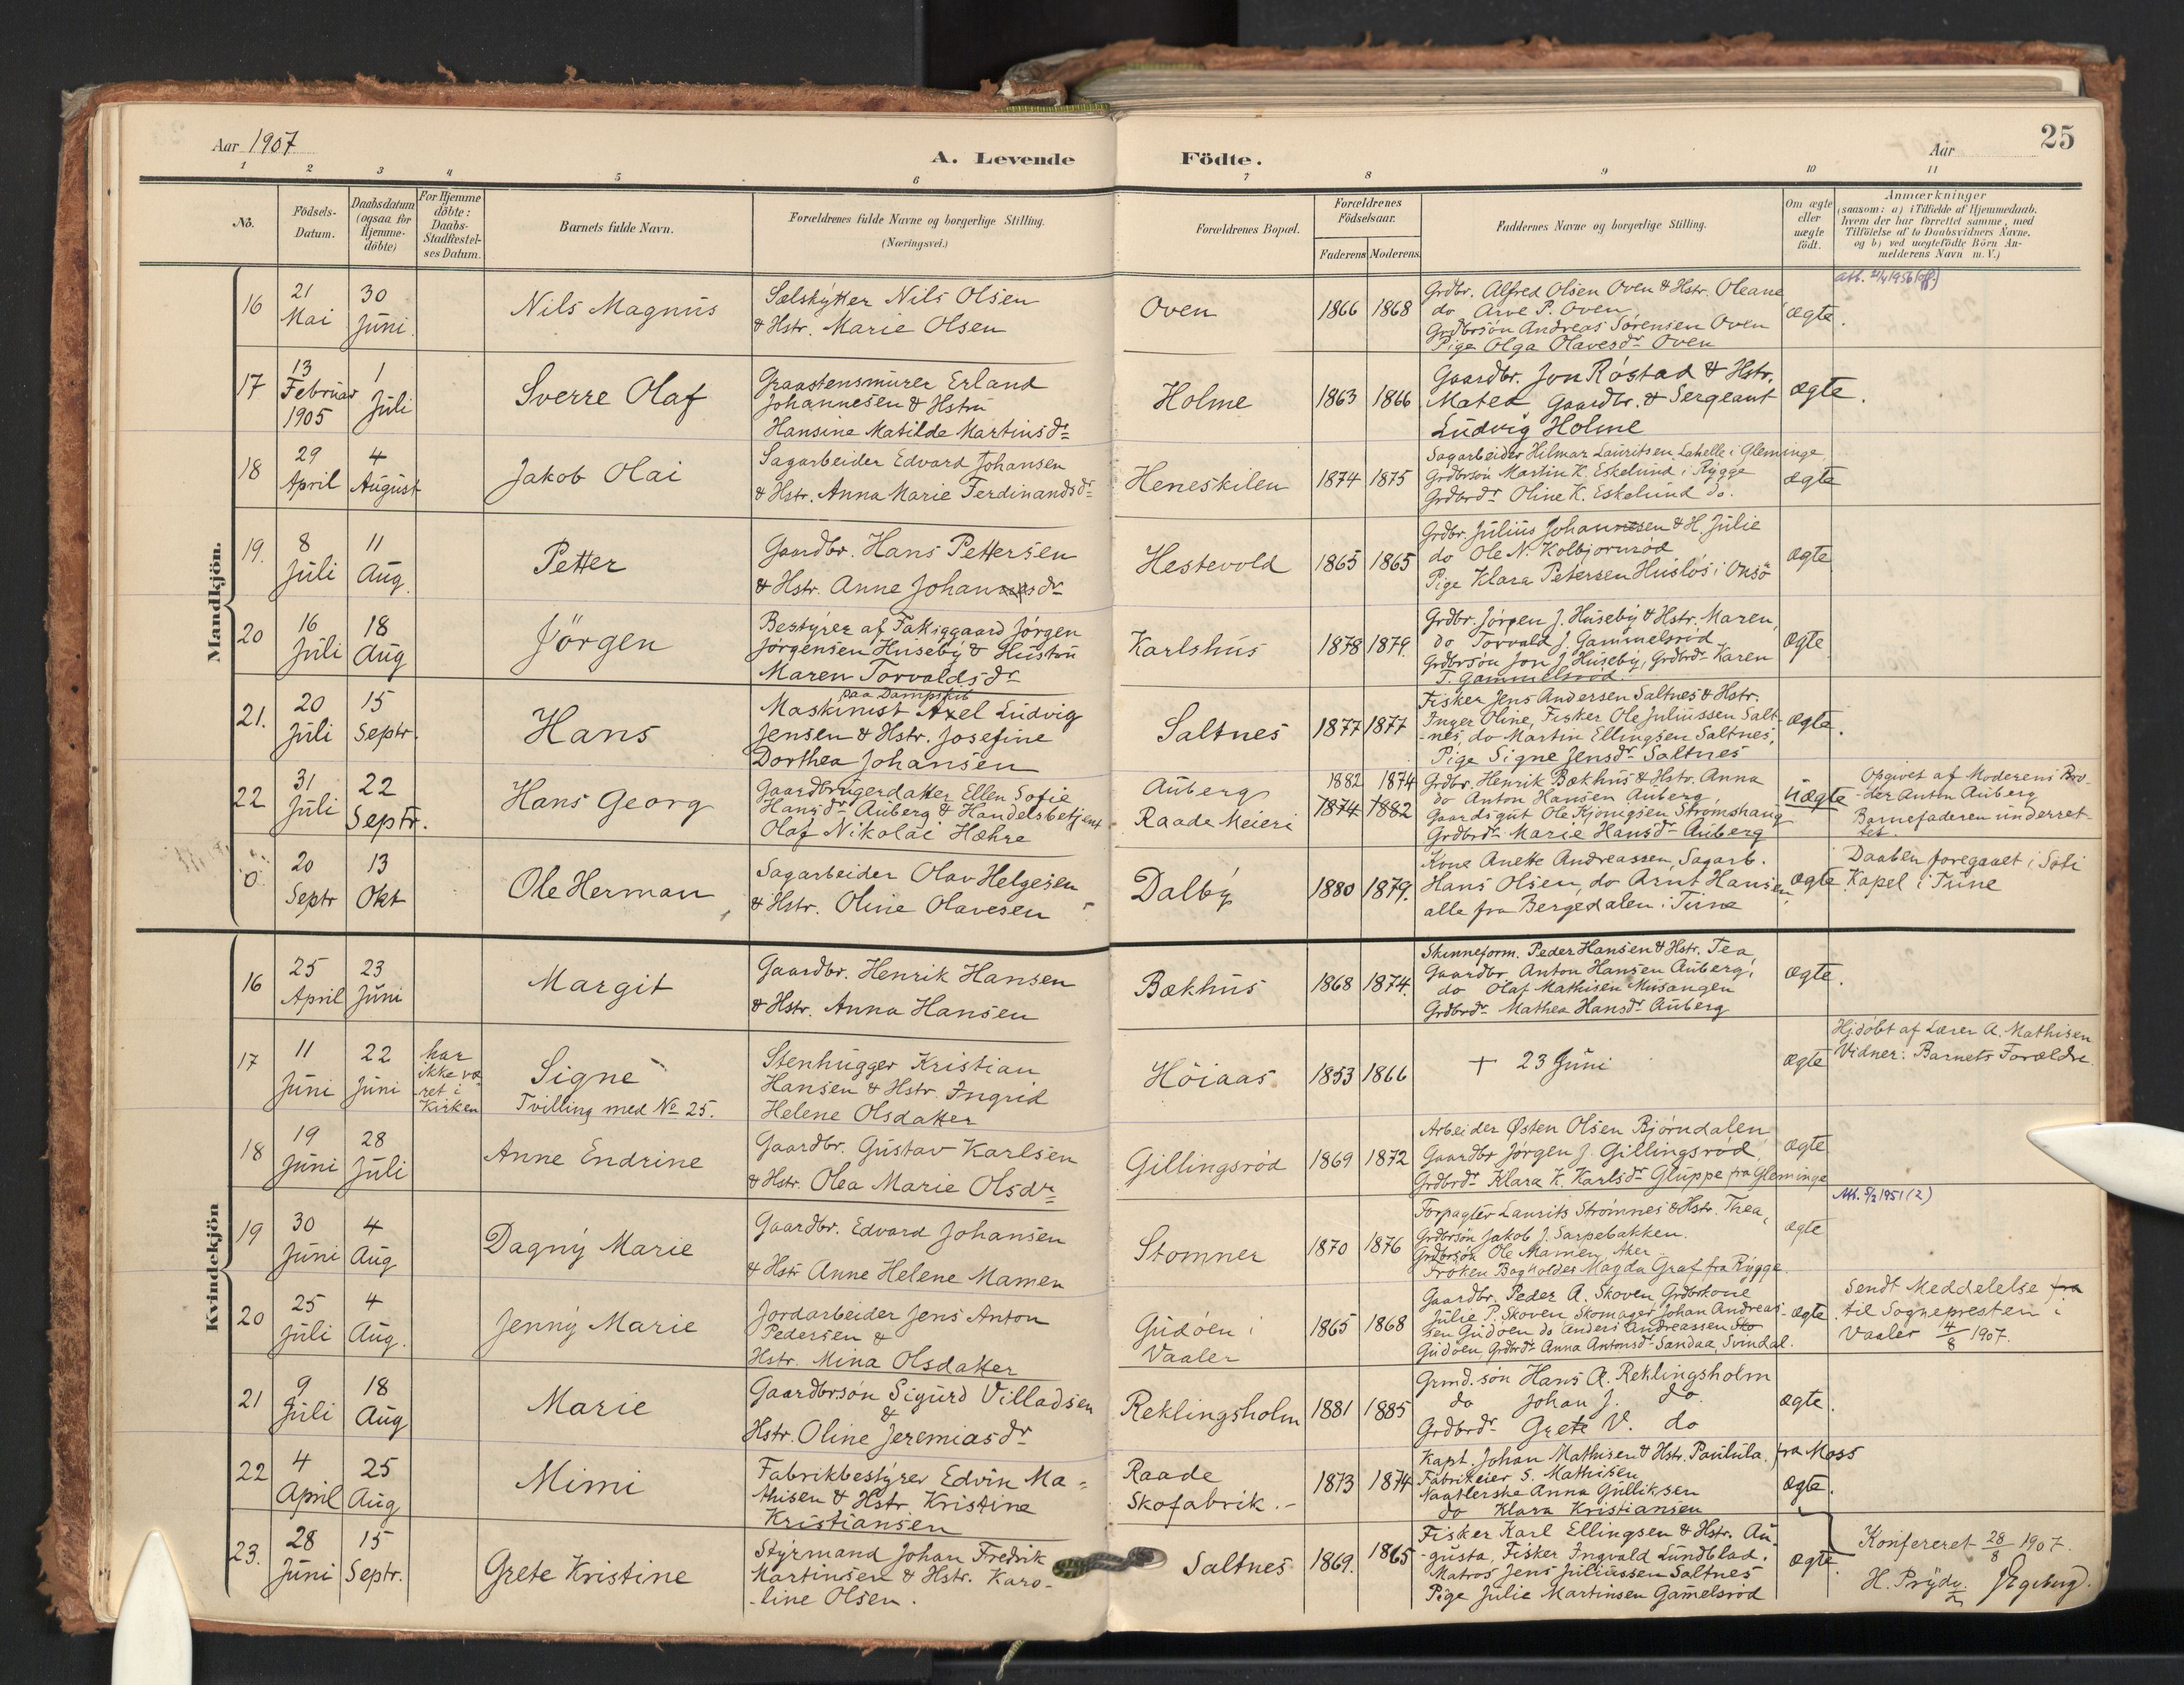 Aar 1907
A. Levende Födte.
Aar
25
1 2 3 4 5 6 7 8 9 10 11
No.
Födsels-Datum.
Daabsdatum (ogsaa for Hjemme-döbte)
For Hjemme döbte: Daabs-Stadfæstel-ses Datum.
Barnets fulde Navn.
Forældrenes fulde Navne og borgerlige Stilling.
(Næringsvei.)
Forældrenes Bopæl.
Forældrenes Födselsaar.
Faderens Moderens
Faddernes Navne og borgerlige Stilling.
Om ægte eller uægte født.
Anmærkninger
(saasom: a) i Tilfælde af Hjemmedaab.
hvem der har forrettet samme, med
Tilföielse af to Daabsvidners Navne.
og b) ved uægtefödte Börn An-
melderens Navn m. V.)
Mandkjön.
16
21 Mai
30 Juni.
Nils Magnus
Selskytter Nils Olsen
& Hstr. Marie Olsen
Oven
1866 1868
Grdbr. Alfred Olsen Oven & Hstr. Oleane
do Arve P. Oven
Grdbrsön Andreas Sörensen Oven
Pige Olga Olavesdr Oven
ægte.
17
13 Februar 1905
1 Juli
Sverre Olaf
Graastensmurer Erland
Johannesen & Hstru
Hansine Matilde Martinsdr
Holme
1863 1866
Gaardbr. Jon Röstad & Hstr.
Matea, Gaardbr. & Sergeant
Ludvig Holme
ægte.
18
29 April
4 August
Jakob Olai
Sagarbeider Edvard Johansen
& Hstr. Anna Marie Ferdinandsdr
Heneskilen
1874 1875
Sagarbeider Hilmar Lauritsen, Lahelle i Gleminge
Grdbrsön Martin K. Eskelund i Rygge
Grdbrdr Oline K. Eskelund do.
ægte
19.
8 Juli
11 Aug.
Petter
Gaardbr. Hans Pettersen
& Hstr. Anne Johannesdr
Hestevold
1865 1865
Grdbr. Julius Johannesen & H. Julie
do Ole N. Kolbjornröd
Pige Klara Petersen Huslös i Onsö
ægte
20
16 Juli
18 Aug
Jörgen
Bestyrer af Fattiggaard Jörgen
Jörgensen Huseby & Hustru
Maren Torvaldsdr
Karlshus
1878 1879.
Grdbr. Jörgen J. Huseby & Hstr. Maren,
do Torvald J. Gammelsröd
Grdbrsön Jon J. Huseby, Grdbrdr Karen
T. Gammelsröd.
ægte
21.
20 Juli
15 Septr.
Hans
paa Dampskib
Maskinist Axel Ludvig
Jensen & Hstr. Josefine
Dorthea Johansen
Saltnes
1877 1877
Fisker Jens Andersen Saltnes & Hstr.
Inger Oline, Fisker Ole Juliussen Salt-
-nes, do Martin Ellingsen Saltnes,
Pige Signe Jensdr Saltnes
ægte.
22
31 Juli
22 Septr.
Hans Georg
Gaardbrugerdatter Ellen Sofie
Hansdr Auberg & Handelsbetjent
Olaf Nikolai Hæhre
Auberg
Raade Meieri
1882 1874
1874 1882
Grdbr. Henrik Bækhus & Hstr. Anna
do Anton Hansen Auberg
Gaardsgut Ole Kjönigsen Strömshaug
Grdbrdr Marie Hansdr Auberg
uægte
Opgivet af Moderens Bro-
-der Anton Auberg
Barnefaderen underret-
tet.
0
20 Septr
13 Okt
Ole Herman
Sagarbeider Olav Helgesen
& Hstr. Oline Olavesen
Dalby
1880 1879.
Kone Anette Andreassen, Sagarb.
Hans Olsen, do Arnt Hansen,
alle fra Bergedalen i Tune
ægte
Daaben foregaaet i Soli
Kapel i Tune
Kvindekjön
16
25 April
23 Juni
Margit
Gaardbr. Henrik Hansen
& Hstr. Anna Hansen
Bækhus
1868 1874.
Skinneform. Peder Hansen & Hstr. Tea
Gaardbr. Anton Hansen Auberg,
do Olaf Mathisen Musangen
Grdbrdr Mathea Hansdr Auberg
ægte.
17
11 Juni
22 Juni
har ikke væ-ret i Kirken
Signe
Tvilling med No 25.
Stenhugger Kristian
Hansen & Hstr. Ingrid
Helene Olsdatter
Höiaas
1853 1866
+ 23 Juni
ægte
Hjdöbt af Lærer A. Mathisen
Vidner: Barnets Forældre
18
19 Juni
28 Juli
Anne Endrine
Gaardbr. Gustav Karlsen
& Hstr. Olea Marie Olsdr
Gillingsröd
1869 1872
Arbeider Østen Olsen Bjørndalen
Gaardbr Jörgen J. Gillingsröd
Grdbrdr Klara K. Karlsdr Gluppe fra Gleminge
ægte
19
30 Juni
4 Aug
Dagny Marie
Gaardbr. Edvard Johansen
& Hstr Anne Helene Mamen
Stomner
1870 1876
Forpagter Laurits Strömnes & Hstr. Thea,
Grdbrsön Jakob J. Sarpebakken.
Grdbrsön Ole Mamen, Aker
Fröken Bogholder Magda Graf fra Rygge.
ægte
Att. 5/2 1951 (2)
20
25 Juli
4 Aug.
Jenny Marie
Jordarbeider Jens Anton
Pedersen &
Hstr. Mina Olsdatter
Gudöen i
Vaaler
1865 1868
Gaardbr. Peder A. Skoven Grdbrkone
Julie P. Skoven Skomager Johan Andreas-
sen Gudöen do Anders Andreassen
Gudöen, Grdbrdr Anna Antonsdr Sandaa, Svindal.
ægte
Sendt Meddelelse fra
til Sognepresten i
Vaaler 4/8 1907.
21
9 Juli
18 Aug
Marie
Gaardbrsön Sigurd Villadsen
&
Hstr. Oline Jeremiasdr
Reklingsholm
1881 1885
Grmd.sön Hans A. Reklingsholm
do Johan J. do
Grdbrdr Grete V. do
ægte.
22
4 April
25 Aug
Mimi
Fabrikbestyrer Edvin Ma-
thisen & Hstr. Kristine
Kristiansen
Raade
Skofabrik.
1873 1874
Kapt. Johan Mathisen & Hstr. Paulula. fra Moss
Fabrikeier S. Mathisen
Naatlerske Anna Gulliksen
do Klara Kristiansen
ægte.
23.
28 Juni
15 Septr.
Grete Kristine
Styrmand Johan Fredrik
Martinsen & Hstr. Karo-
-line Olsen.
Saltnes
1869. 1865
Fisker Karl Ellingsen & Hstr. Au-
-gusta, Fisker Ingvald Lundblad.
Matros Jens Juliussen Saltnes
Pige Julie Martinsen Gamelsröd
ægte.
Konfereret 28/8 1907.
H. Prydz